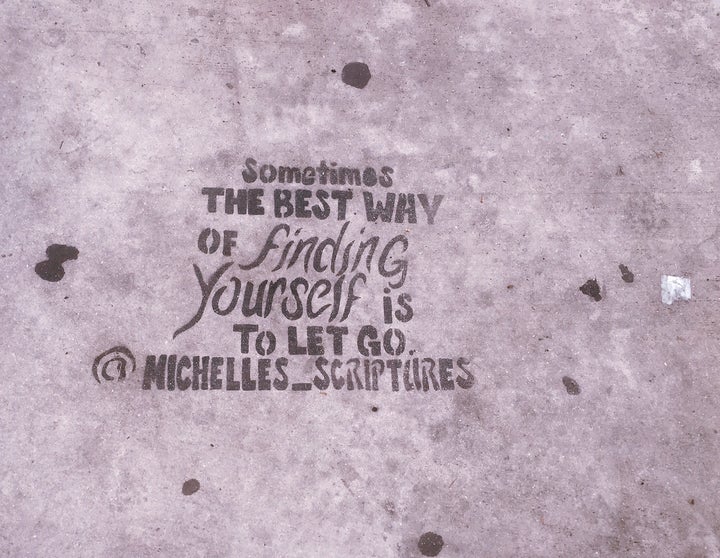 Sometimes
THE BEST WAY
OF finding
Yourself is
TO LET GO.
@MICHELLES_SCRIPTURES